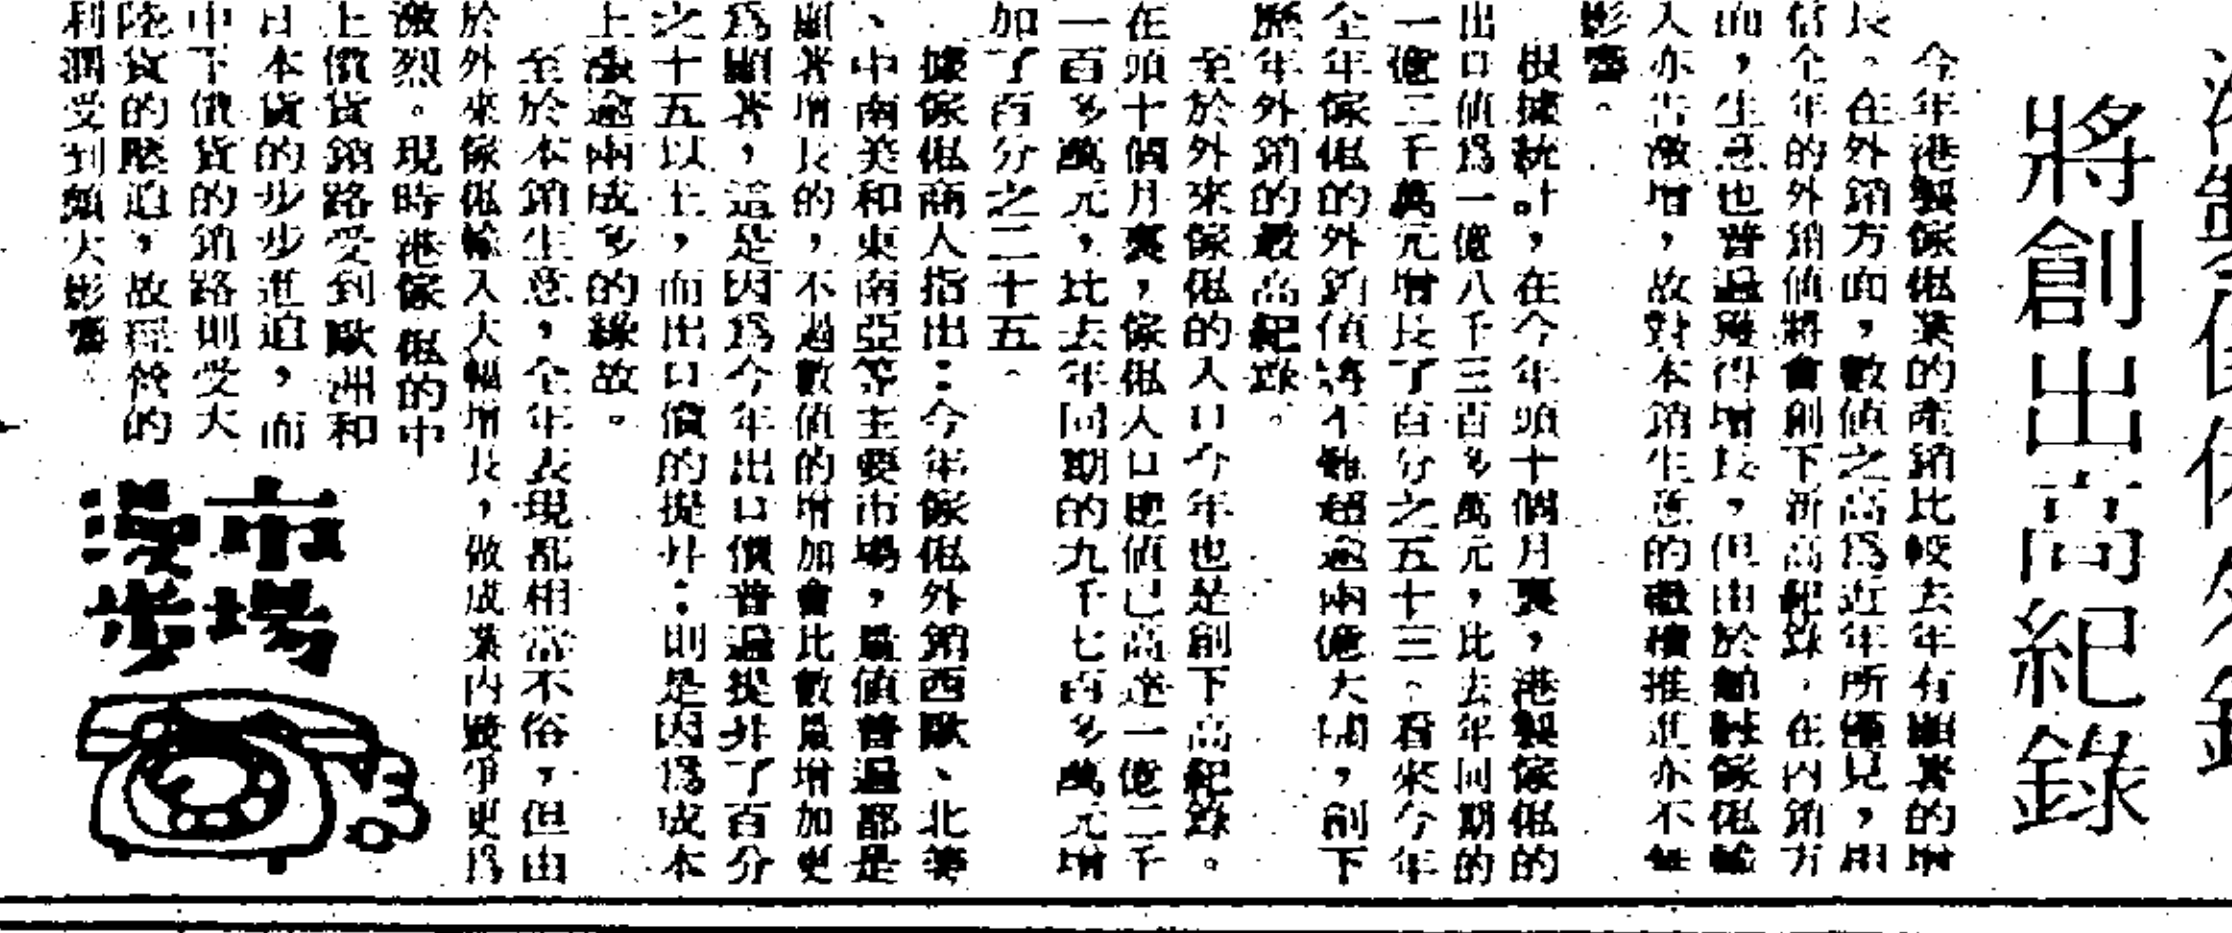 將創出高紀錄
今年港製傢俬業的產銷比較去年有顯著的增
長。在外銷方面,數值之高爲近年所僅見,相
信全年的外銷值將會創下新高紀錄。在內銷方
面,生意也普遍獲得增長,但由於外來傢俬輸
入亦告激增,故對本銷生意的繼續推進亦不無
影響。
根據統計,在今年頭十個月裏,港製傢俬的
出口值爲一億八千三百多萬元,比去年同期的
一億二千萬元增長了百分之五十三。看來今年
全年傢俬的外銷值將不難超逾兩億大關,創下
歷年外銷的最高紀錄。
至於外來傢俬的入口今年也是創下高紀錄。
在頭十個月裏,傢俬入口總值已高達一億二千
一百多萬元,比去年同期的九千七百多萬元增
加了百分之二十五。
據傢俬商人指出:今年傢俬外銷西歐、北美
、中南美和東南亞等主要市場,量值普遍都是
顯著增長的,不過數值的增加會比數量增加更
爲顯著,這是因爲今年出口價普遍提升了百分
之十五以上,而出口價的提升:則是因爲成本
上漲逾兩成多的緣故。
至於本銷生意,全年表現都相當不俗,但由
於外來傢俬輸入大幅增長,做成業內競爭更爲
激烈。現時港傢俬的中
上價貨銷路受到歐洲和
日本貨的步步進迫,而
中下價貨的銷路則受大
陸貨的壓迫,故經營的
利潤受到頗大影響。
市場
漫步